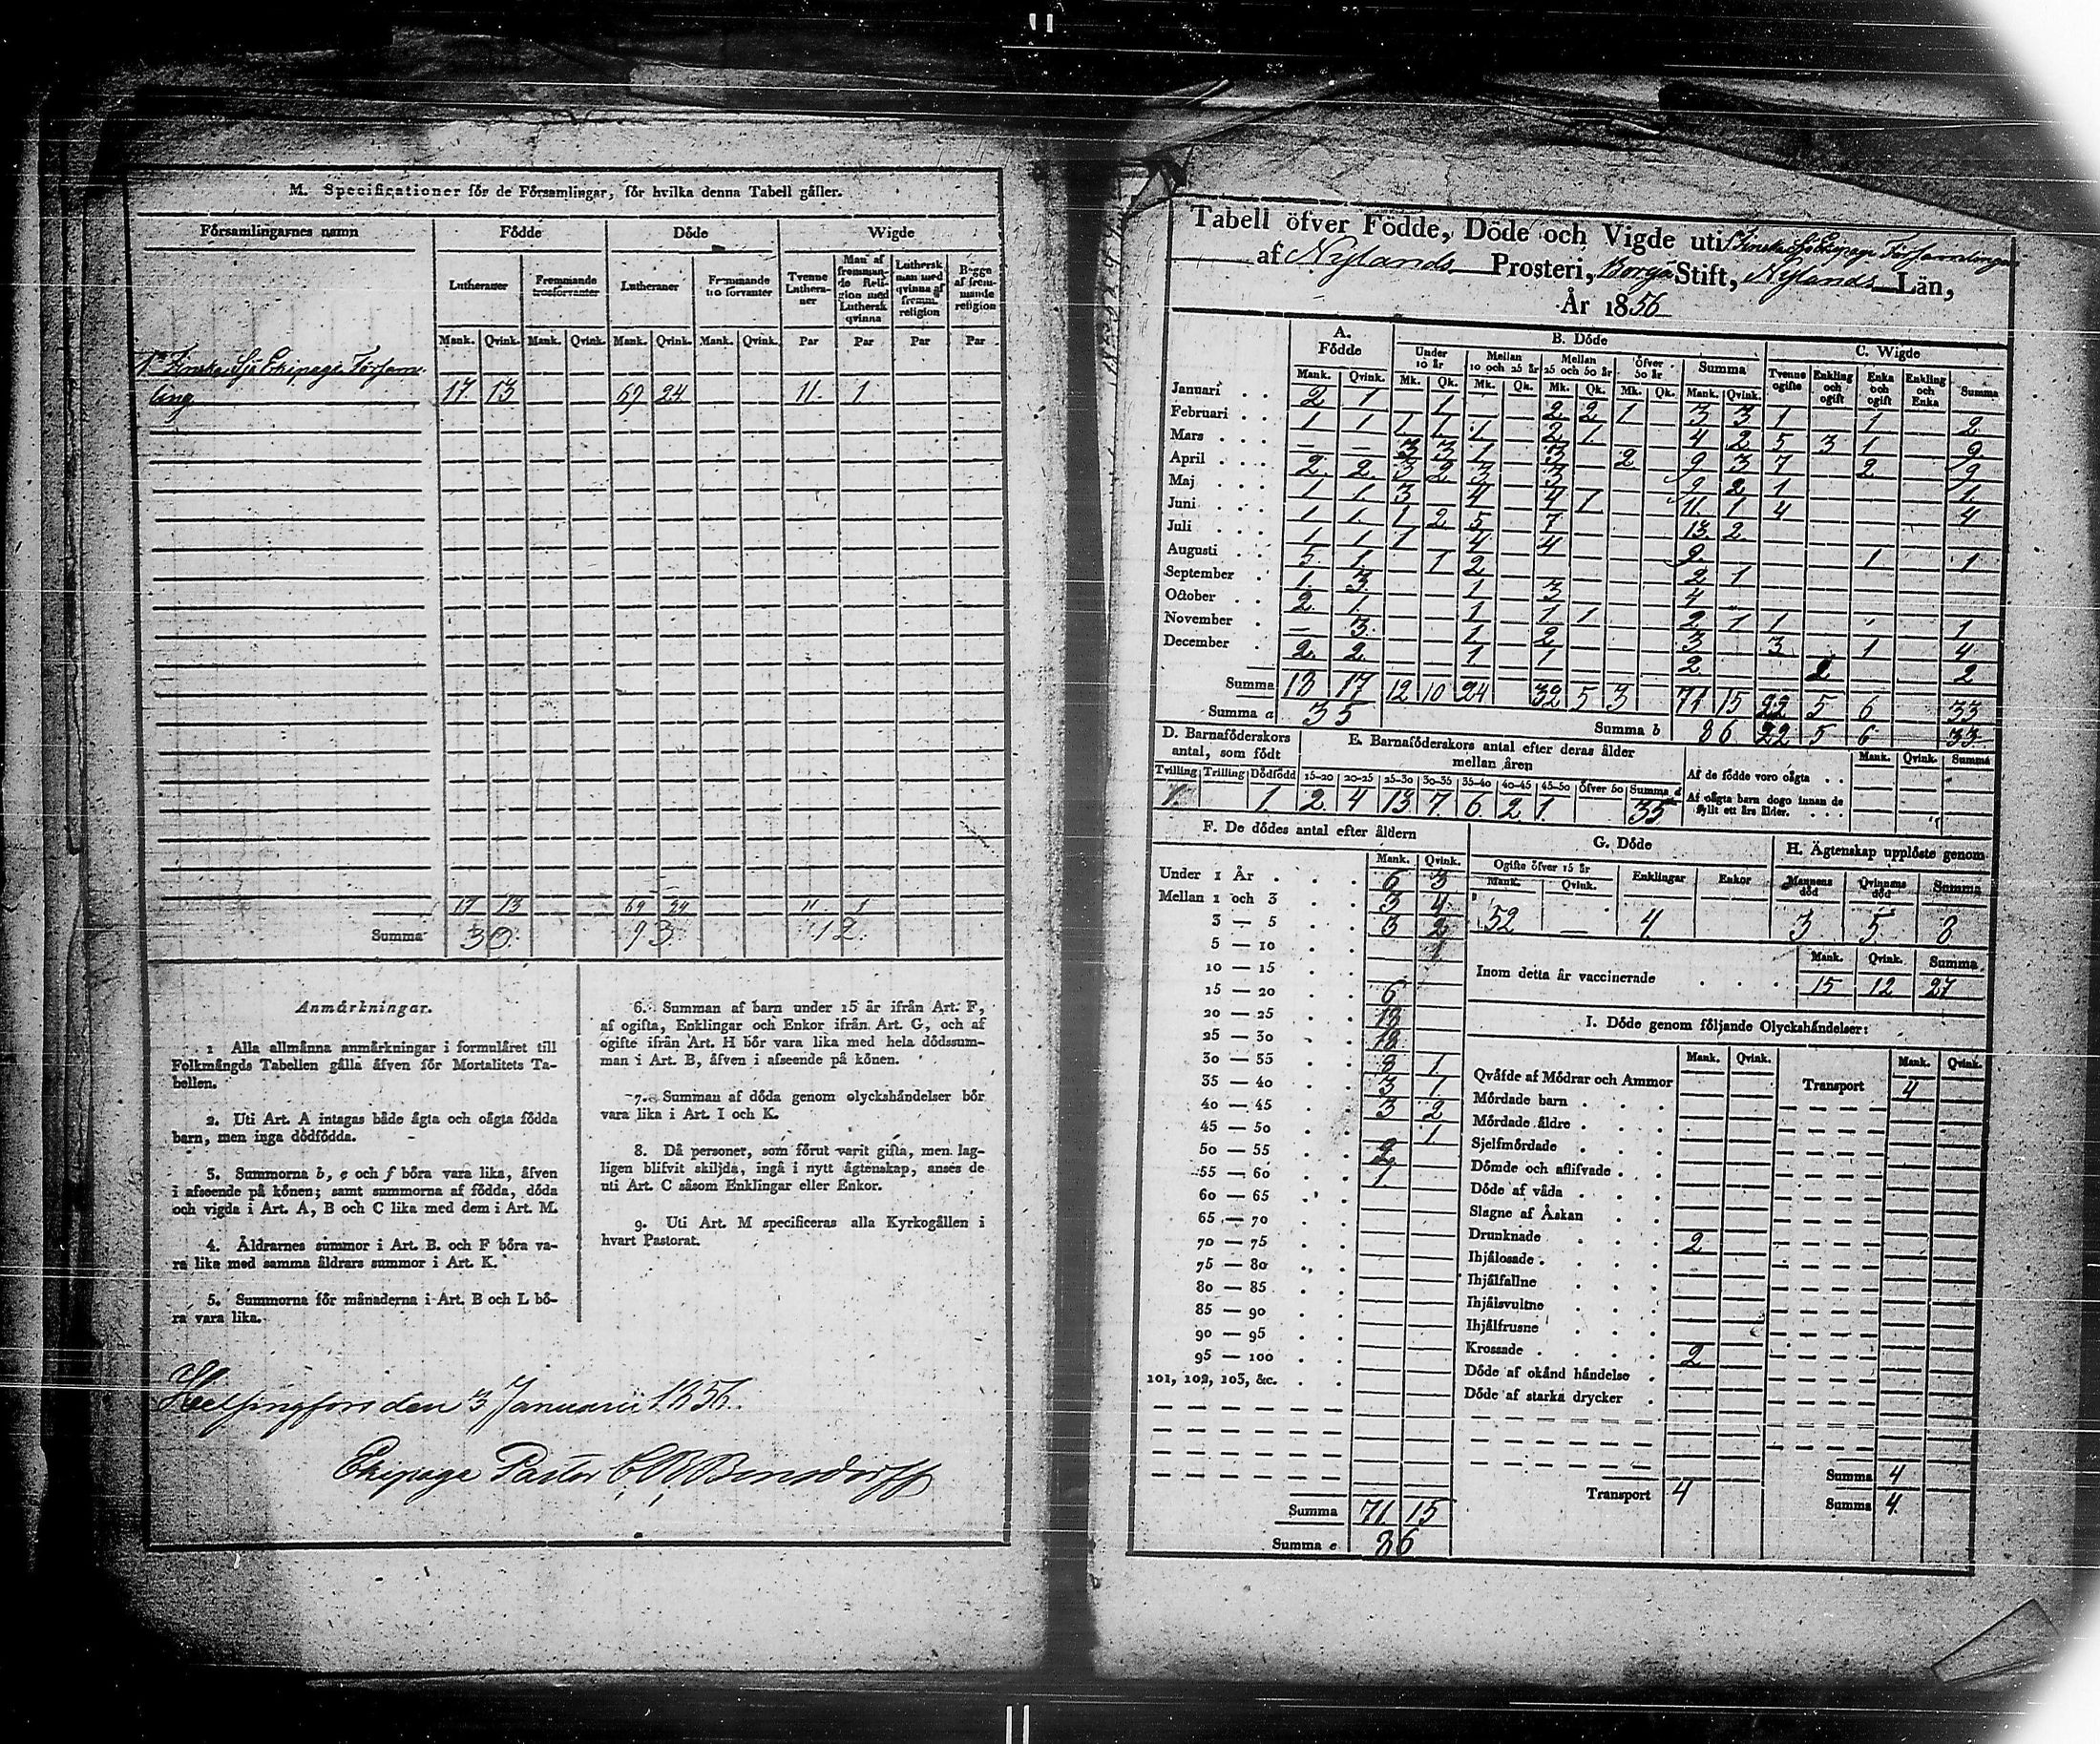 M. Specificationer för de Församlingar, för hvilka denna Tabell gäller.
Församlingarnes namn Födde Döde Wigde
Lutheraner Fremmande trosförvanter Lutheraner Fremmande trosförvanter Tvenne Lutheraner Man af fremmande Religion med Luthersk qvinna Luthersk man med qvinna af fremm. religion Begge af fremmande religion
Mank. Qvink. Mank. Qvink. Mank. Qvink. Mank. Qvink. Par Par Par Par
1a Finska Sjö Ekipage Försam-
ling 17 13 69 24 11 1
17 13 69 24 11 1
Summa 30 93 12
Anmärkningar.
1 Alla allmänna anmärkningar i formuläret till
Folkmängds Tabellen gälla äfven för Mortalitets Ta-
bellen.
2. Uti Art. A intagas både ägta och oägta födda
barn, men inga dödfödda.
3. Summorna b, e och f böra vara lika, äfven
i afseende på könen; samt summorna af födda, döda
och vigda i Art. A, B och C lika med dem i Art. M.
4. Åldrarnes summor i Art. B. och F böra va-
ra lika med samma åldrars summor i Art. K.
5. Summorna för månaderna i Art. B och L bö-
ra vara lika.
6. Summan af barn under 15 år ifrån Art. F,
af ogifta, Enklingar och Enkor ifrån Art. G, och af
ogifte ifrån Art. H bör vara lika med hela dödssum-
man i Art. B, äfven i afseende på könen.
7. Summan af döda genom olyckshändelser bör
vara lika i Art. I och K.
8. Då personer, som förut varit gifta, men lag-
ligen blifvit skiljda, ingå i nytt ägtenskap, anses de
uti Art. C såsom Enklingar eller Enkor.
9. Uti Art. M specificeras alla Kyrkogällen i
hvart Pastorat.
Helsingfors den 3 Januarii 1856.
Ekipage Pastor Bonsdorff
Tabell öfver Födde, Döde och Vigde uti 1 Finska Sjö Ekipage Församlingen
af Nylands Prosteri, Borgå Stift, Nylands Län,
År 1856
A. Födde B. Döde C. Wigde
Under 10 år Mellan 10 och 25 år Mellan 25 och 50 år Öfver 50 år Summa Tvenne ogifte Enkling och ogift Enka och ogift Enkling och Enka Summa
Mank. Qvink. Mk. Qk. Mk. Qk. Mk. Qk. Mk. Qk. Mank. Qvink.
Januari 2 1 1 2 2 1 3 3 1 1 2
Februari 1 1 1 1 1 2 1 4 2 5 3 1 9
Mars — — 3 3 1 3 2 9 3 7 2 9
April 2 2 3 2 3 3 9 2 1 1
Maj 1 1 3 4 4 1 11 1 4 4
Juni 1 1 1 2 5 7 13 2
Juli 1 1 1 4 4 9 1 1
Augusti 5 1 1 2 2 1
September 1 3 1 3 4
October 2 1 1 1 1 2 1 1 1
November — 3 1 2 3 3 1 4
December 2 2 1 1 2 2 2
Summa 18 17 12 10 24 32 5 3 71 15 22 5 6 33
Summa a 35 Summa b 86 22 5 6 33
D. Barnaföderskors antal, som födt E. Barnaföderskors antal efter deras ålder mellan åren
Mank. Qvink. Summa
Tvilling Trilling Dödfödd 15-20 20-25 25-30 30-35 35-40 40-45 45-50 Öfver 50 Summa d
1 1 2 4 13 7 6 2 1 35
Af de födde voro oägta
Af oägta barn dogo innan de fyllt ett års ålder.
F. De dödes antal efter åldern
Mank. Qvink.
Under 1 År 6 3
Mellan 1 och 3 3 4
3 — 5 3 2
5 — 10 1
10 — 15
15 — 20 6
20 — 25 18
25 — 30 18
30 — 35 8 1
35 — 40 3 1
40 — 45 3 2
45 — 50 1
50 — 55 2
55 — 60 1
60 — 65
65 — 70
70 — 75
75 — 80
80 — 85
85 — 90
90 — 95
95 — 100
101, 102, 103, &c.
Summa 71 15
Summa e 86
G. Döde H. Ägtenskap upplöste genom
Ogifte öfver 15 år Enklingar Enkor Mannens död Qvinnans död Summa
Mank. Qvink.
52 — 4 3 5 8
Mank. Qvink. Summa
Inom detta år vaccinerade 15 12 27
I. Döde genom följande Olyckshändelser:
Mank. Qvink. Mank. Qvink.
Qväfde af Mödrar och Ammor Transport 4
Mördade barn
Mördade äldre
Sjelfmördade
Dömde och aflifvade
Döde af våda
Slagne af Åskan
Drunknade 2
Ihjälosade
Ihjälfallne
Ihjälsvultne
Ihjälfrusne
Krossade 2
Döde af okänd händelse
Döde af starka drycker
Summa 4
Transport 4 Summa 4